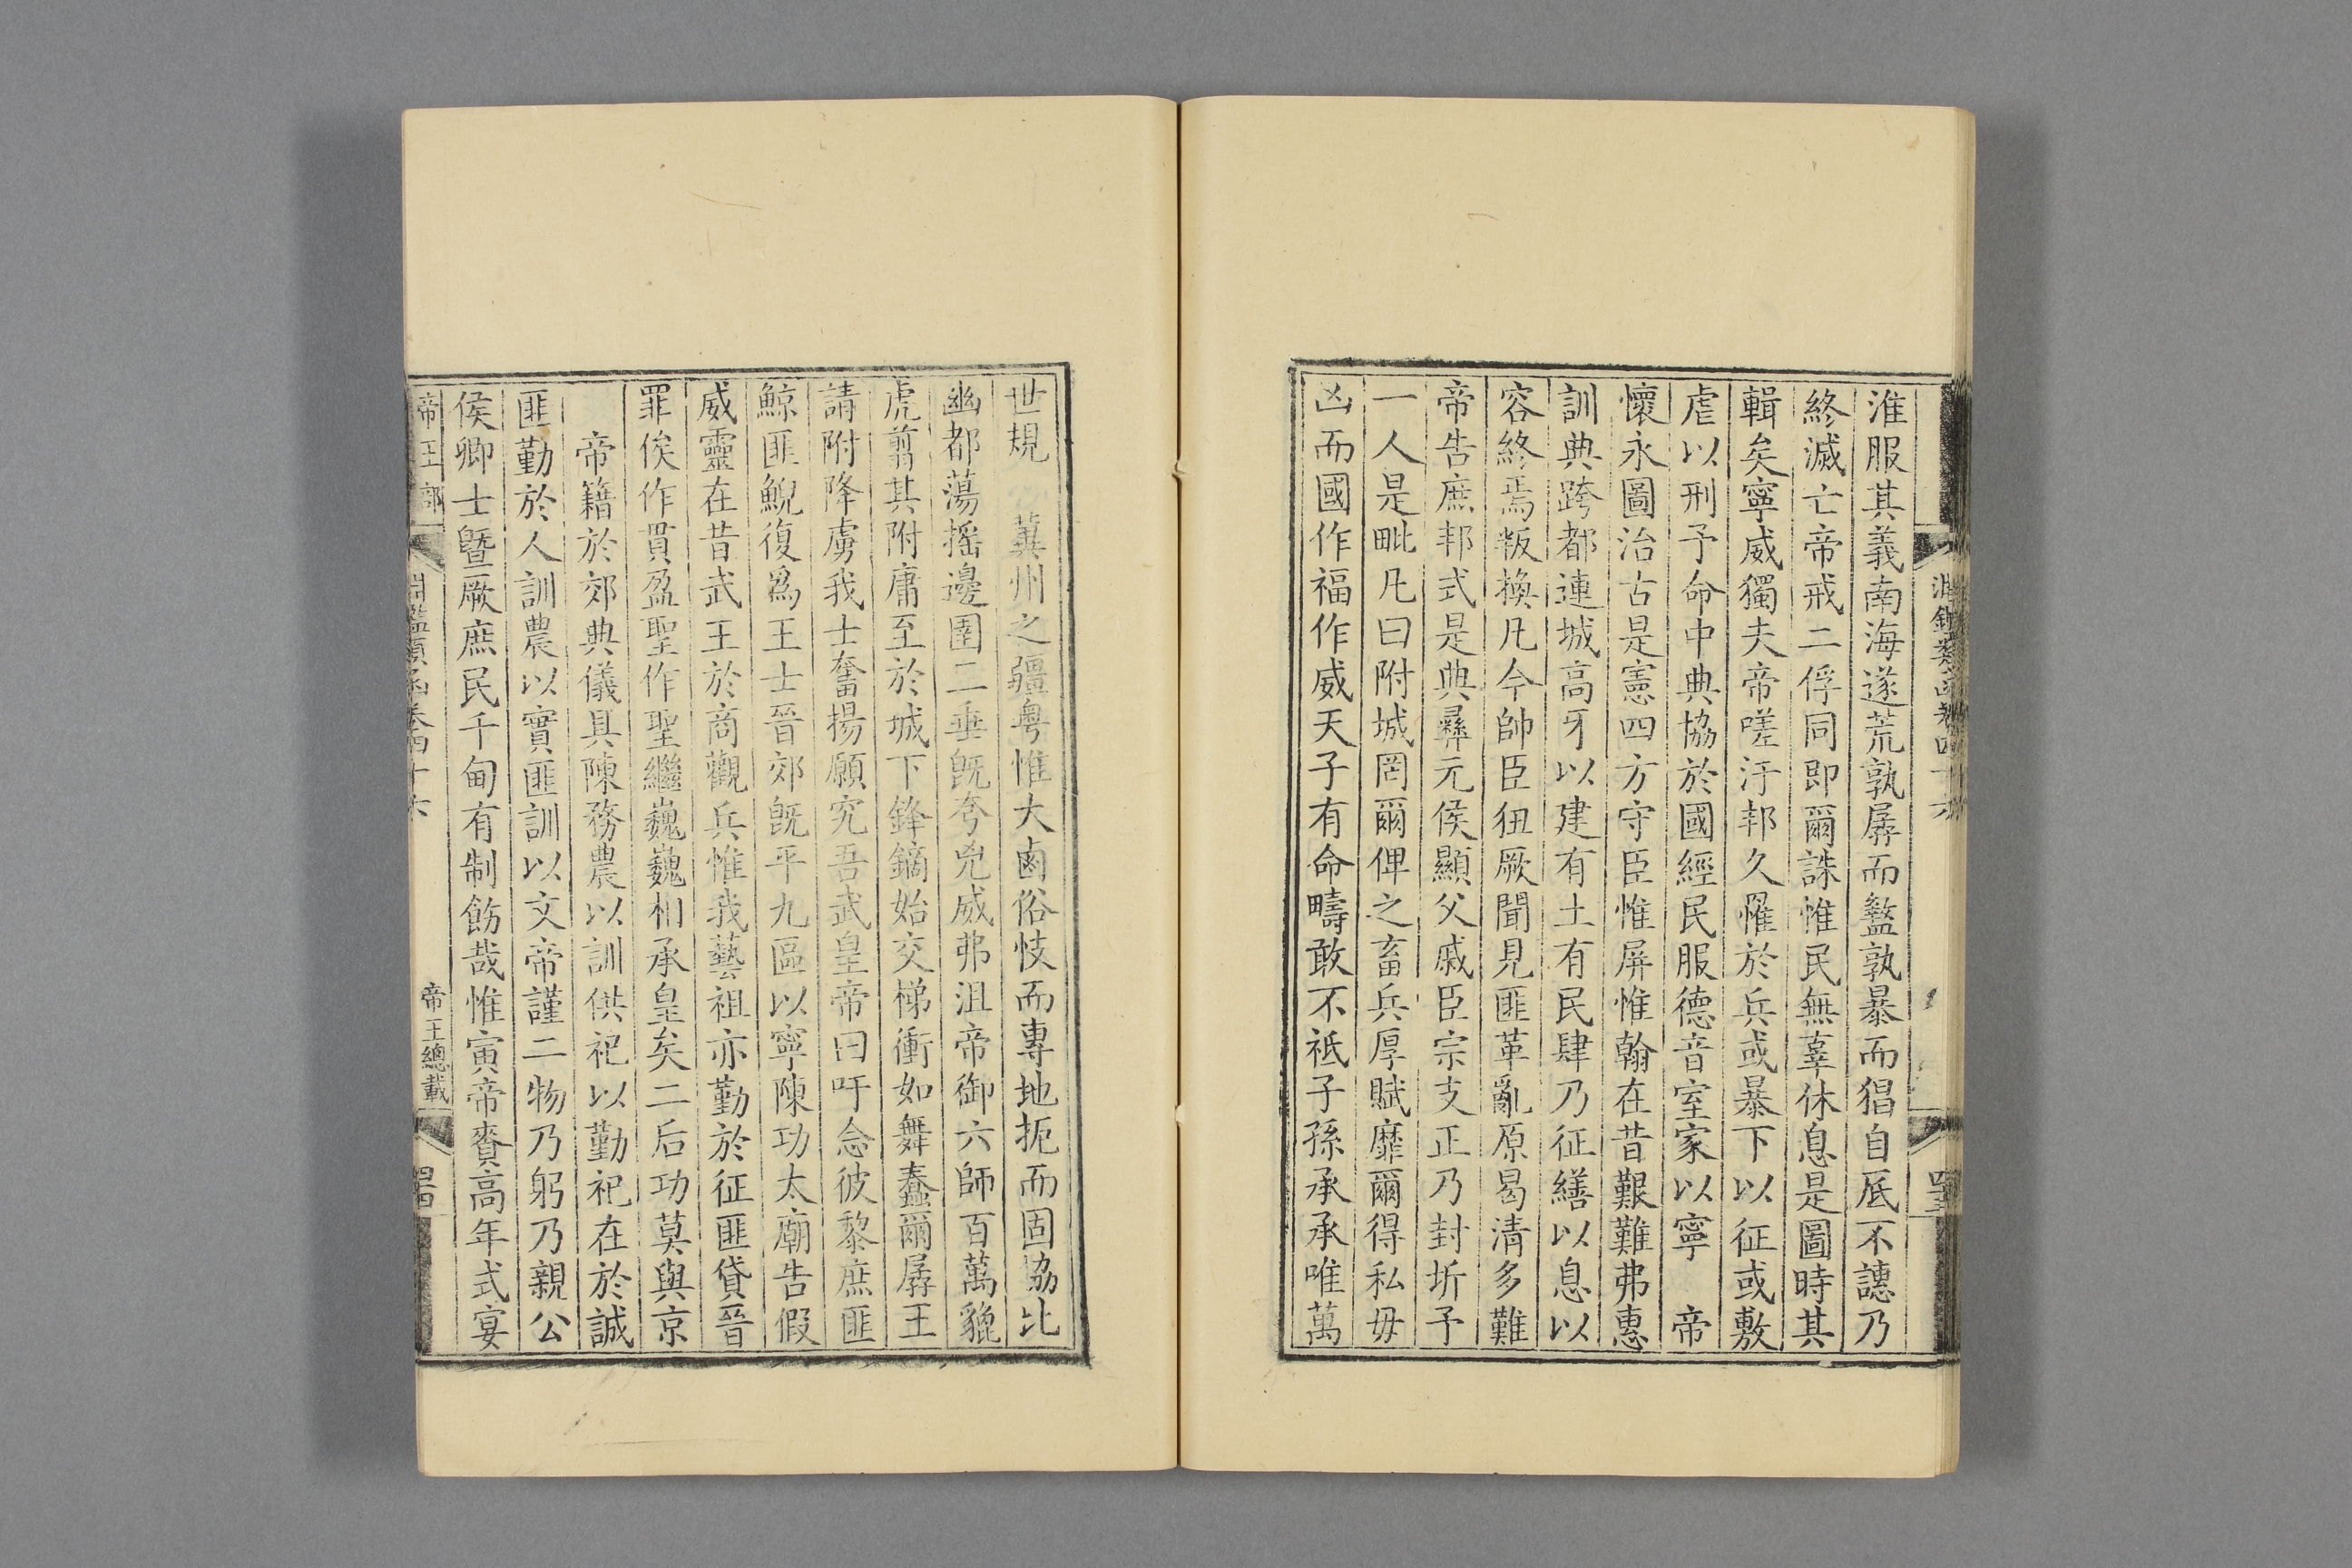 淮服其義南海遂荒孰孱而盭孰暴而猖自底不譓乃
終滅亡帝戒二俘同即爾誅惟民無辜休息是圖時其
輯矣寧威獨夫帝嗟汙邦久罹於兵或暴下以征或敷
虐以刑予命中典協於國經民服德音室家以寧　帝
懷永圖治古是憲四方守臣惟屏惟翰在昔艱難弗惠
訓典跨都連城高牙以建有土有民肆乃征繕以息以
容終焉叛換凡今帥臣狃厥聞見匪革亂原曷清多難
帝告庶邦式是典彝元侯顯父戚臣宗支正乃封圻予
一人是毗凡曰附城罔爾俾之畜兵厚賦靡爾得私毋
凶而國作福作威天子有命疇敢不祗子孫承承唯萬
世規　冀州之疆粤惟大鹵俗忮而專地扼而固協比
幽都蕩搖邊圉二垂既夸兇威弗沮帝御六師百萬貔
虎翦其附庸至於城下鋒鏑始交梯衝如舞蠢爾孱王
請附降虜我士奮揚願究吾武皇帝曰吁念彼黎庶匪
鯨匪鯢復為王士晉郊既平九區以寧陳功太廟告假
威靈在昔武王於商觀兵惟我藝祖亦勤於征匪貸晉
罪俟作貫盈聖作聖繼巍巍相承皇矣二后功莫與京
帝籍於郊典儀具陳務農以訓供祀以勤祀在於誠
匪勤於人訓農以實匪訓以文帝謹二物乃躬乃親公
侯卿士暨厥庶民千甸有制飭哉惟寅帝賚高年式宴
帝王部　淵鑑類函卷四十六　帝王總載　四十四